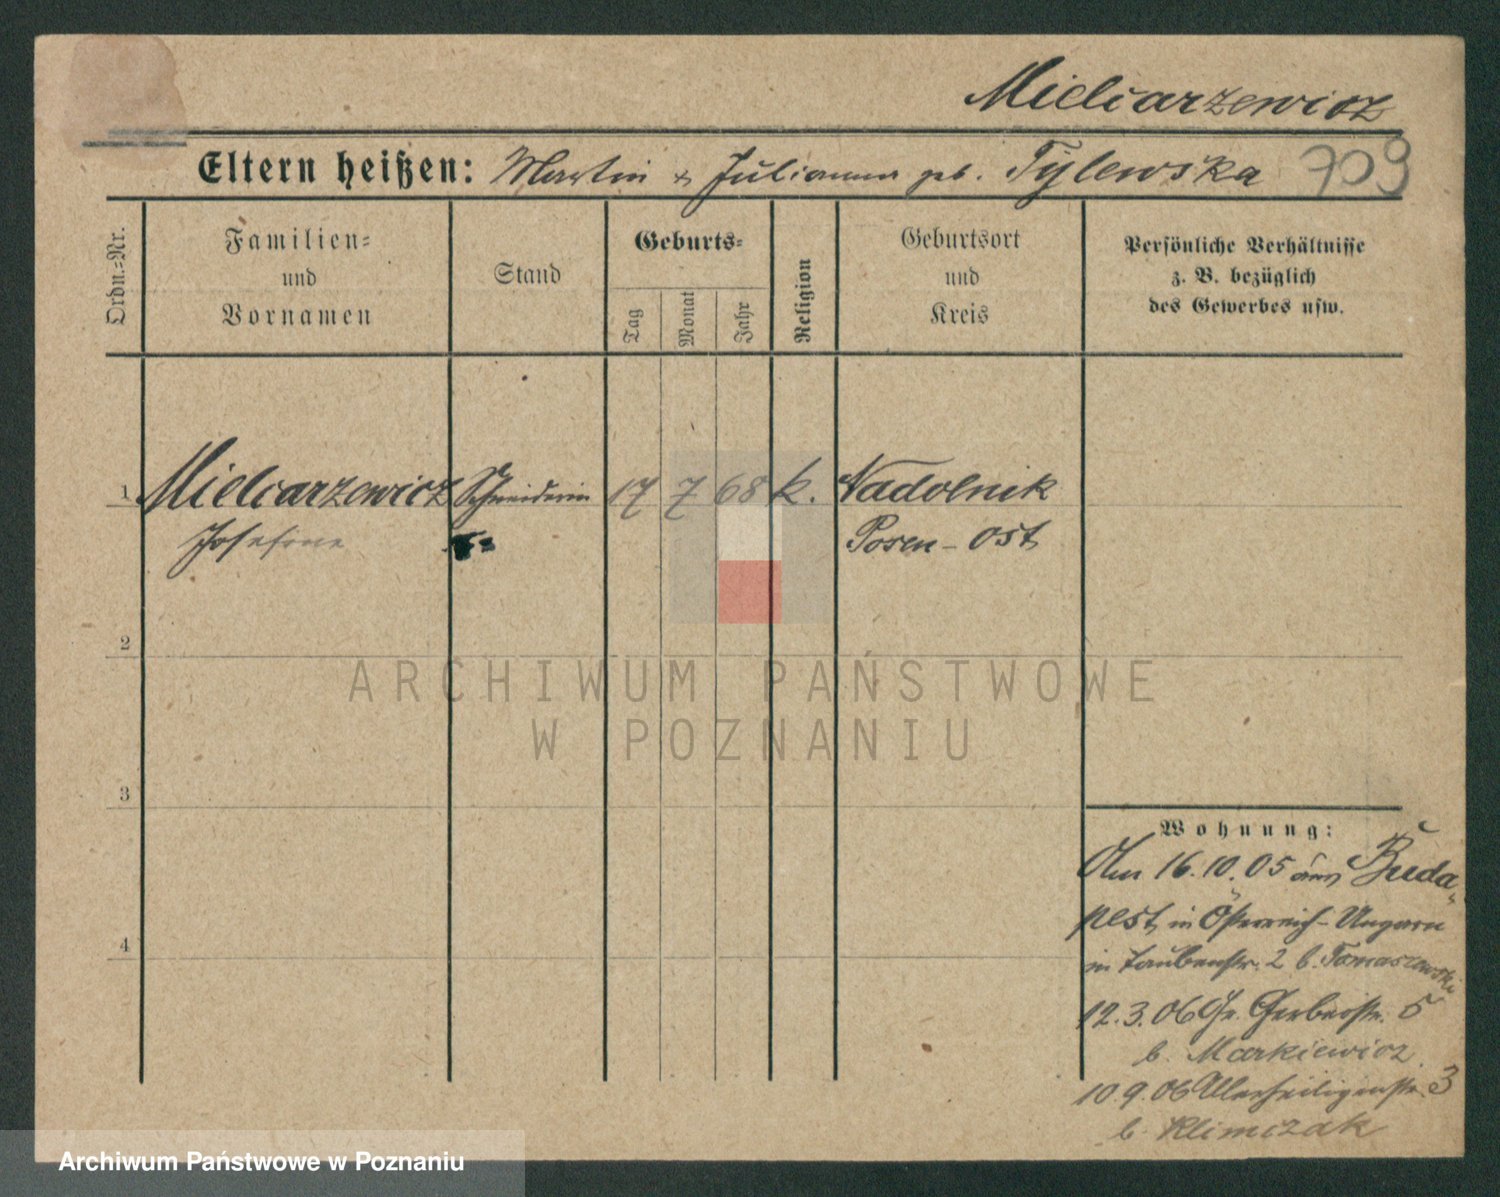 Mielcarzewicz
Eltern heißen: Martin & Julianna geb. Tylewska 709
Ordn.-Nr.
Familien-
und
Vornamen
Stand
Geburts-
Tag
Monat
Jahr
Religion
Geburtsort
und
Kreis
Persönliche Verhältnisse
z. B. bezüglich
des Gewerbes usw.
1 Mielcarzewicz Schneiderin 17 7 68 k. Nadolnik
Josefine Posen-Ost
2
3
4
Wohnung:
Am 16.10.05 aus Buda-
pest in Österreich-Ungarn
in Taubenstr. 2 b. Tomaszewski
12.3.06 Gr. Gerberstr. 5
b. Markiewicz
10.9.06 Allerheiligenstr. 3
b. Klimczak
ARCHIWUM PAŃSTWOWE
W POZNANIU
Archiwum Państwowe w Poznaniu